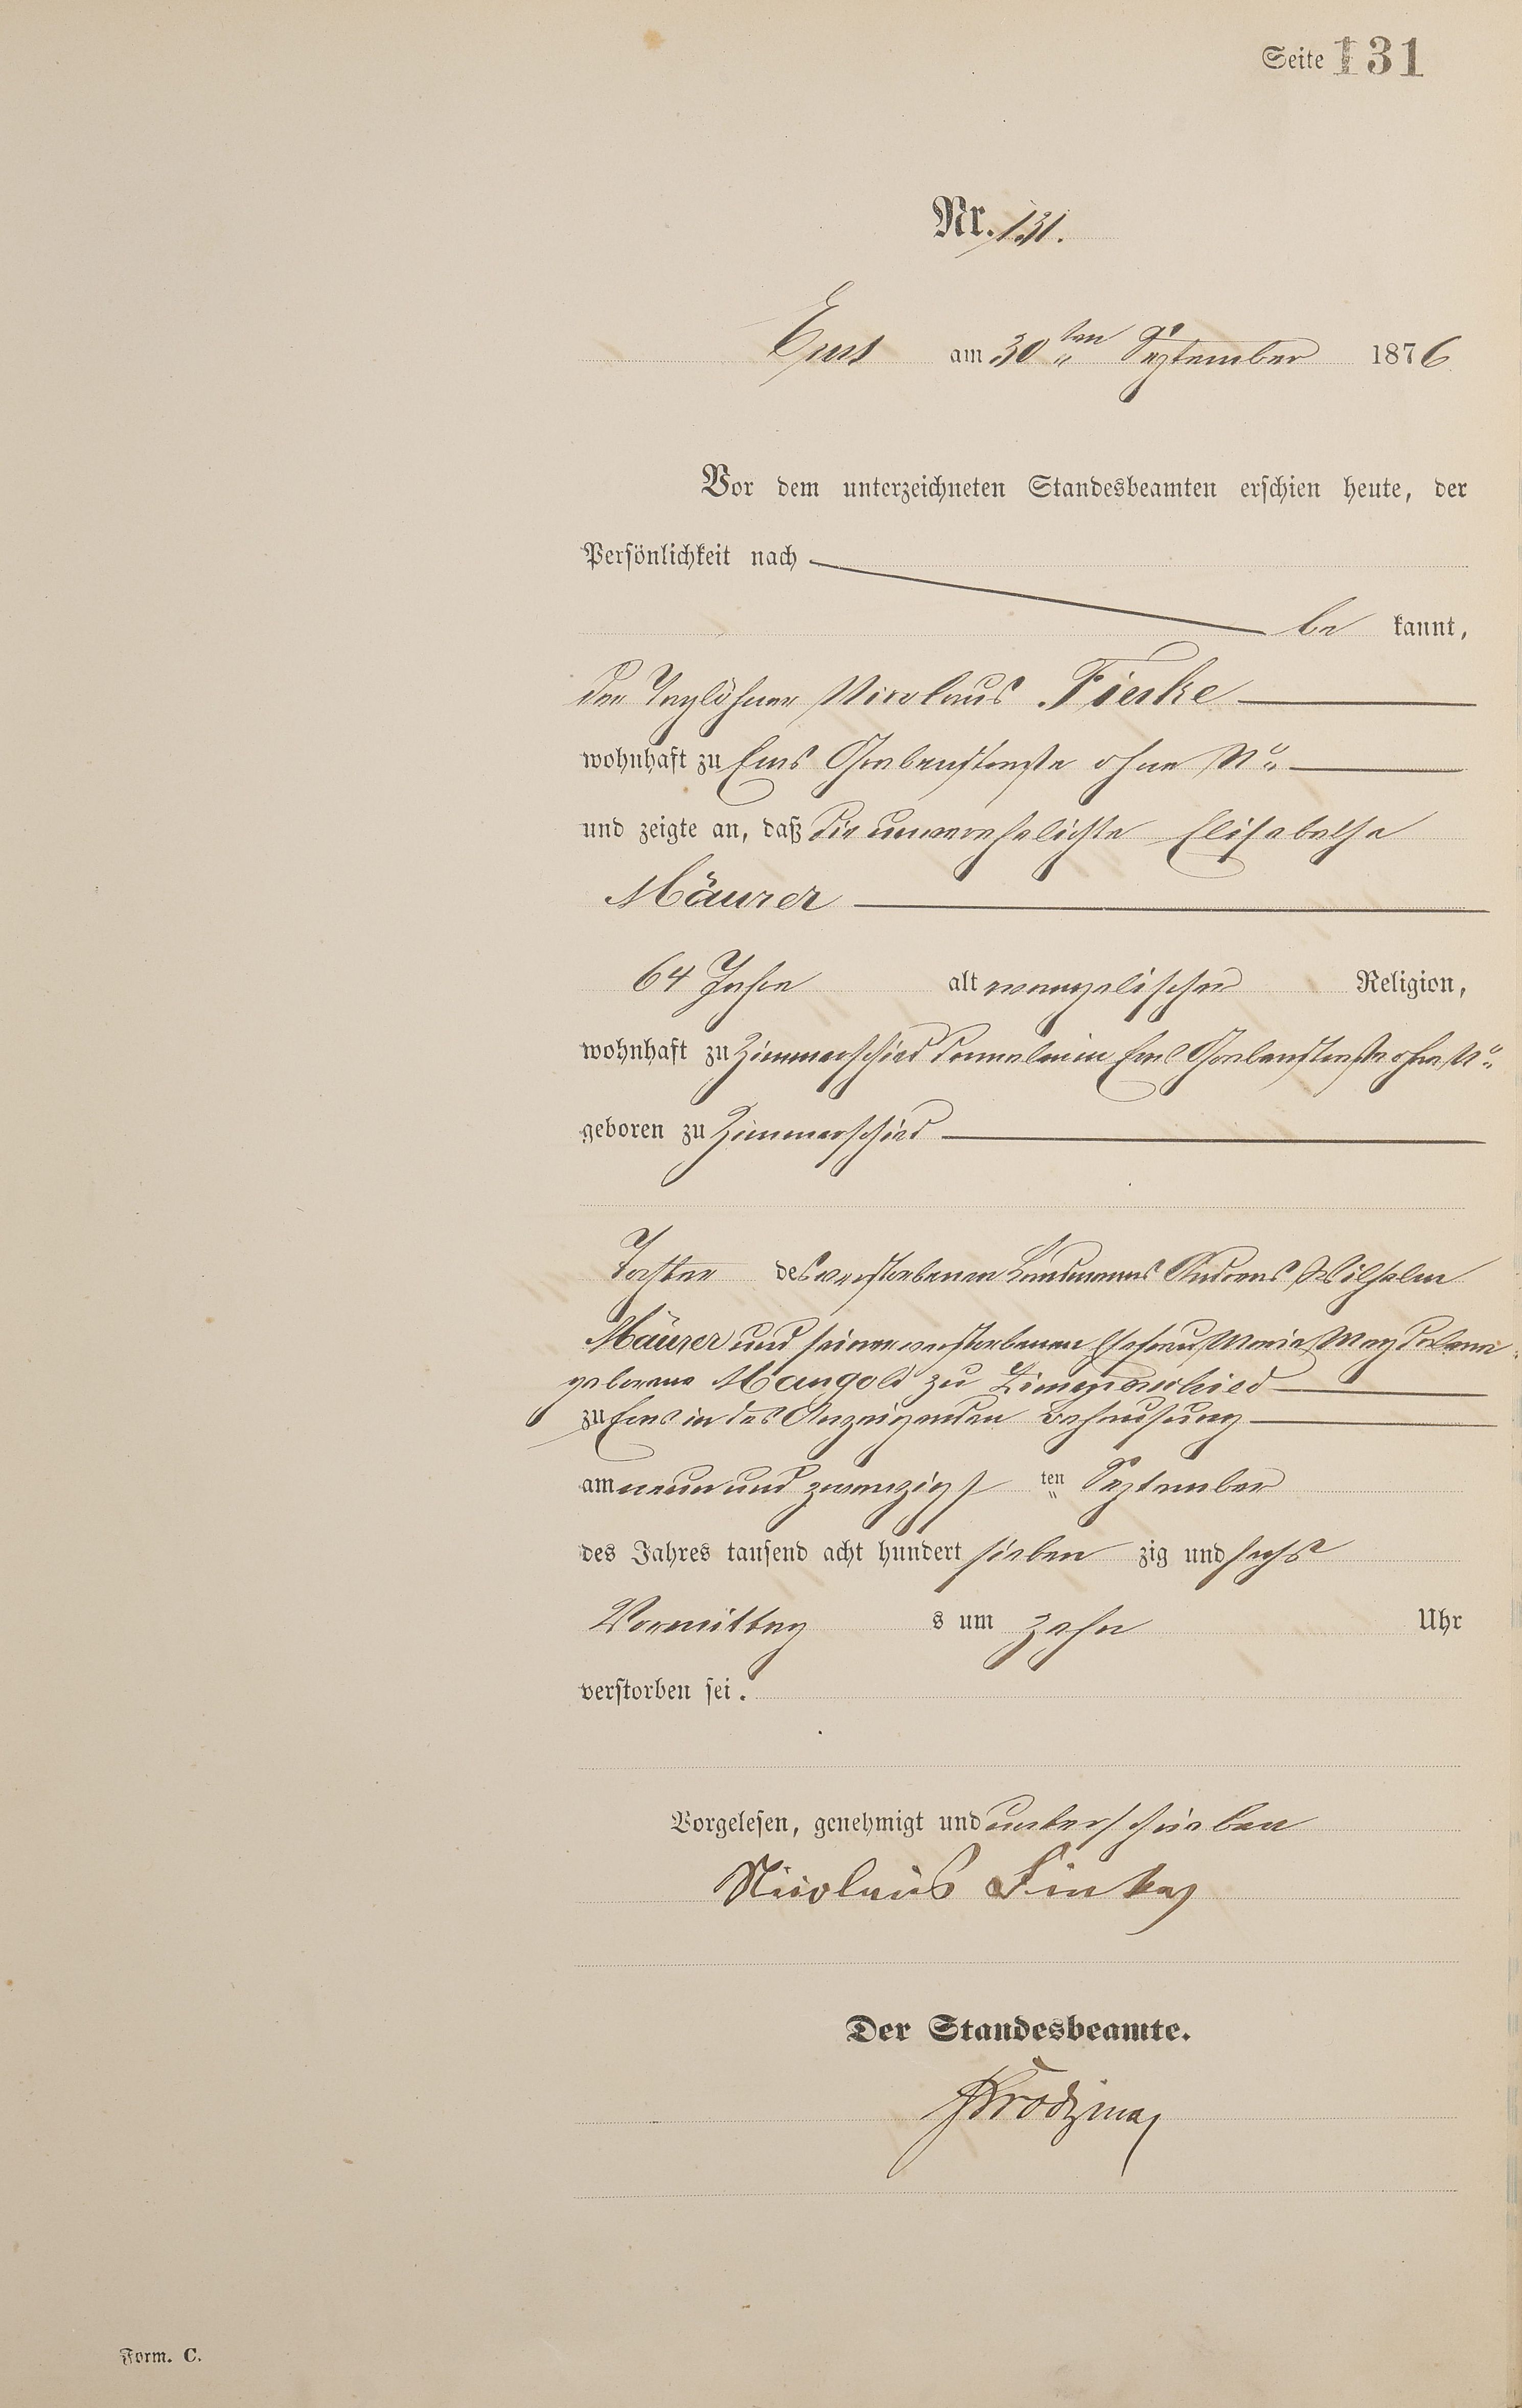 Seite 131
Nr. 131.
Ems am 30ten September 1876
Vor dem unterzeichneten Standesbeamten erschien heute, der
Persönlichkeit nach
be kannt,
der Taglöhner Nicolaus Finke
wohnhaft zu Ems Grabenstraße ohne No
und zeigte an, daß die unverehelichte Elisabetha
Mäurer
64 Jahre alt evangelischer Religion,
wohnhaft zu Zimmerschied dermalen in Ems Grabenstraße ohne No
geboren zu Zimmerschied
Tochter des verstorbenen Landmanns Andreas Wilhelm
Mäurer und seiner verstorbenen Ehefrau Maria Magdalena
geborene Mangold zu Zimmerschied
zu Ems in des Anzeigenden Behausung
am neun und zwanzigst ten September
des Jahres tausend acht hundert sieben zig und sechs
Vormittag s um zehn Uhr
verstorben sei.
Vorgelesen, genehmigt und unterschrieben
Nicolaus Finke
Der Standesbeamte.
Form. C.